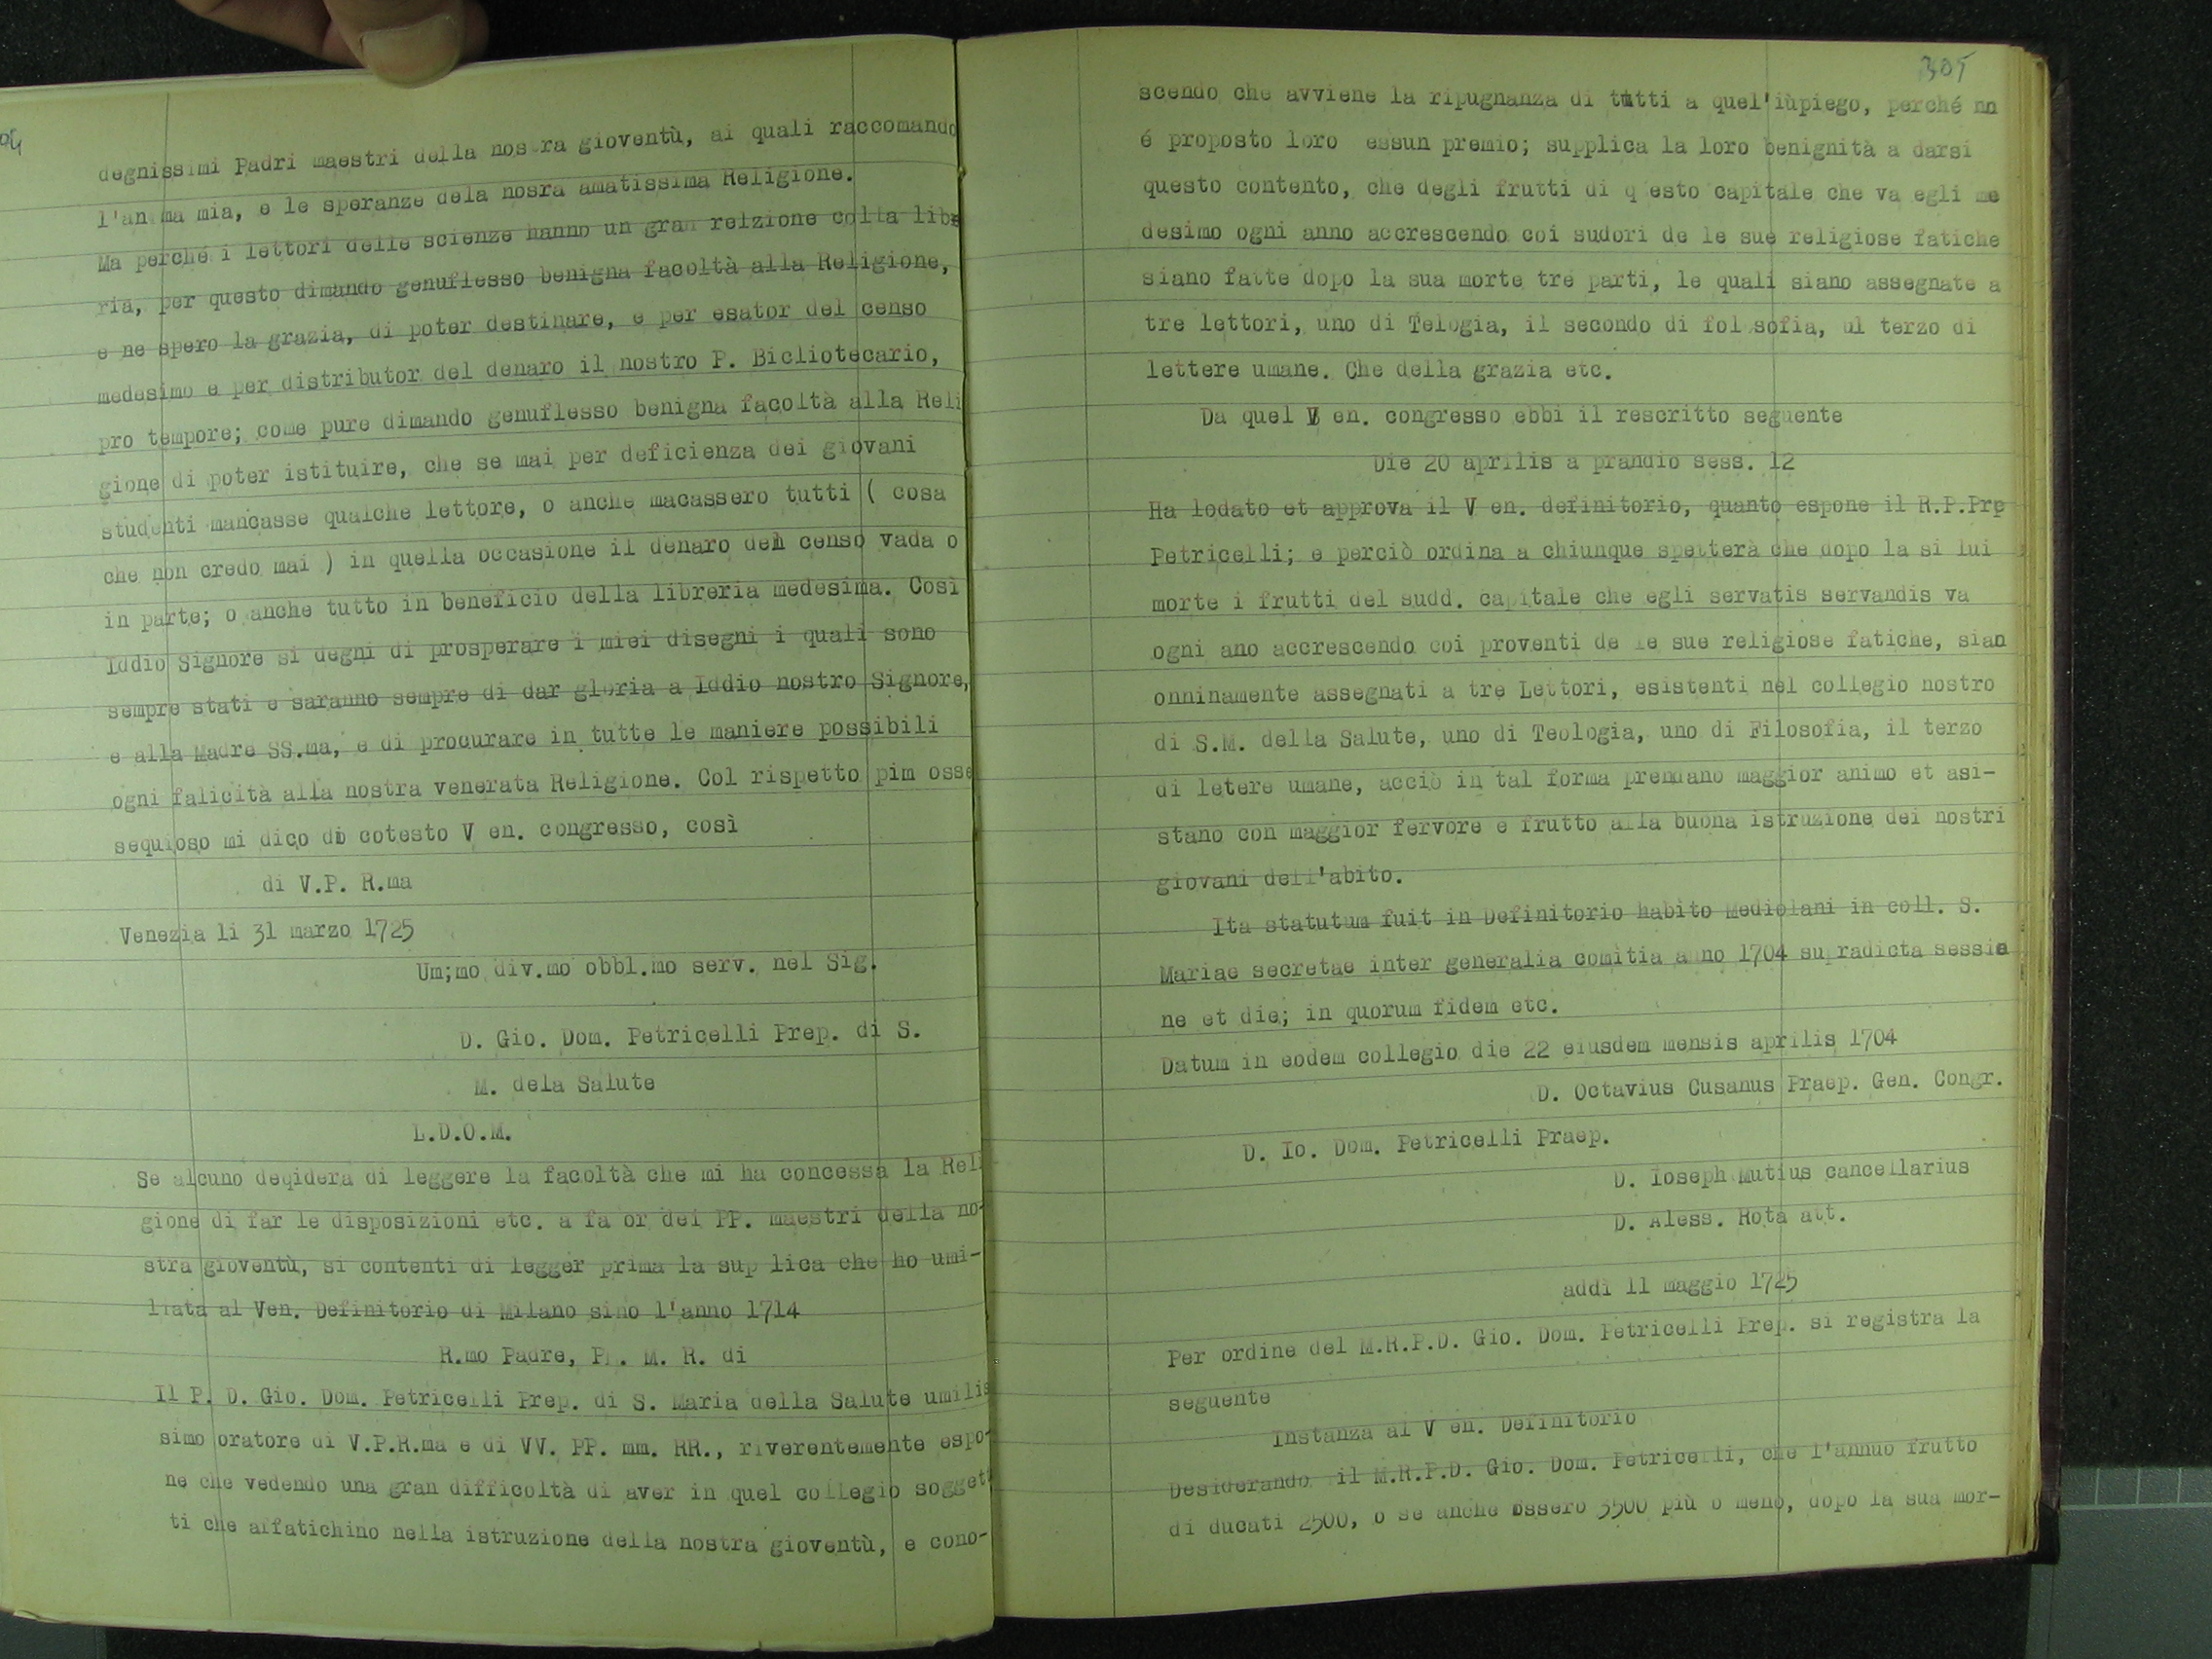 04
degnissimi Padri maestri della nos ra gioventù, ai quali raccomando
l'an ma mia, e le speranze dela nosra amatissima Religione.
Ma perché i lettori delle scienze hanno un gran relzione colla libr
ria, per questo dimando genuflesso benigna facoltà alla Religione,
e ne spero la grazia, di poter destinare, e per esator del censo
medesimo e per distributor del denaro il nostro P. Bicliotecario,
pro tempore; come pure dimando genuflesso benigna facoltà alla Reli
gione di poter istituire, che se mai per deficienza dei giovani
studenti mancasse qualche lettore, o anche macassero tutti ( cosa
che non credo mai ) in quella occasione il denaro del censo vada o
in parte; o anche tutto in beneficio della libreria medesima. Così
Iddio Signore si degni di prosperare i miei disegni i quali sono
sempre stati e saranno sempre di dar gloria a Iddio nostro Signore,
e alla Madre SS.ma, e di procurare in tutte le maniere possibili
ogni falicità alla nostra venerata Religione. Col rispetto pim osse
sequioso mi dico di cotesto V en. congresso, così
di V.P. R.ma
Venezia li 31 marzo 1725
Um;mo div.mo obbl.mo serv. nel Sig.
D. Gio. Dom. Petricelli Prep. di S.
M. dela Salute
L.D.O.M.
Se alcuno deqidera di leggere la facoltà che mi ha concessa la Reli
gione di far le disposizioni etc. a fa or dei PP. maestri della no-
stra gioventù, si contenti di legger prima la sup lica che ho umi-
liata al Ven. Definitorio di Milano sino l'anno 1714
R.mo Padre, P . M. R. di
Il P. D. Gio. Dom. Petricelli Prep. di S. Maria della Salute umilis
simo oratore di V.P.R.ma e di VV. PP. mm. RR., riverentemente espo-
ne che vedendo una gran difficoltà di aver in quel collegio sogget
ti che affatichino nella istruzione della nostra gioventù, e cono-
305
scendo che avviene la ripugnanza di tutti a quel'iùpiego, perché nn
é proposto loro essun premio; supplica la loro benignità a darsi
questo contento, che degli frutti di q esto capitale che va egli me
desimo ogni anno accrescendo coi sudori de le sue religiose fatiche
siano fatte dopo la sua morte tre parti, le quali siano assegnate a
tre lettori, uno di Telogia, il secondo di fol sofia, ul terzo di
lettere umane. Che della grazia etc.
Da quel V en. congresso ebbi il rescritto seguente
Die 20 aprilis a prandio sess. 12
Ha lodato et approva il V en. definitorio, quanto espone il R.P.Prp
Petricelli; e perciò ordina a chiunque spetterà che dopo la si lui
morte i frutti del sudd. capitale che egli servatis servandis va
ogni ano accrescendo coi proventi de le sue religiose fatiche, sian
onninamente assegnati a tre Lettori, esistenti nel collegio nostro
di S.M. della Salute, uno di Teologia, uno di Filosofia, il terzo
di letere umane, acciò in tal forma prendano maggior animo et asi-
stano con maggior fervore e frutto alla buona istruzione dei nostri
giovani dell'abito.
Ita statutum fuit in Definitorio habito Mediolani in coll. S.
Mariae secretae inter generalia comitia a no 1704 su radicta sessio
ne et die; in quorum fidem etc.
Datum in eodem collegio die 22 eiusdem mensis aprilis 1704
D. Octavius Cusanus Praep. Gen. Congr.
D. Io. Dom. Petricelli Praep.
D. Ioseph Mutius cancellarius
D. Aless. Rota att.
addì 11 maggio 1725
Per ordine del M.R.P.D. Gio. Dom. Petricelli Prep. si registra la
seguente
Instanza al V en. Definitorio
Desiderando il M.R.P.D. Gio. Dom. Petricelli, che l'annuo frutto
di ducati 2500, o se anche ossero 3500 più o meno, dopo la sua mor-